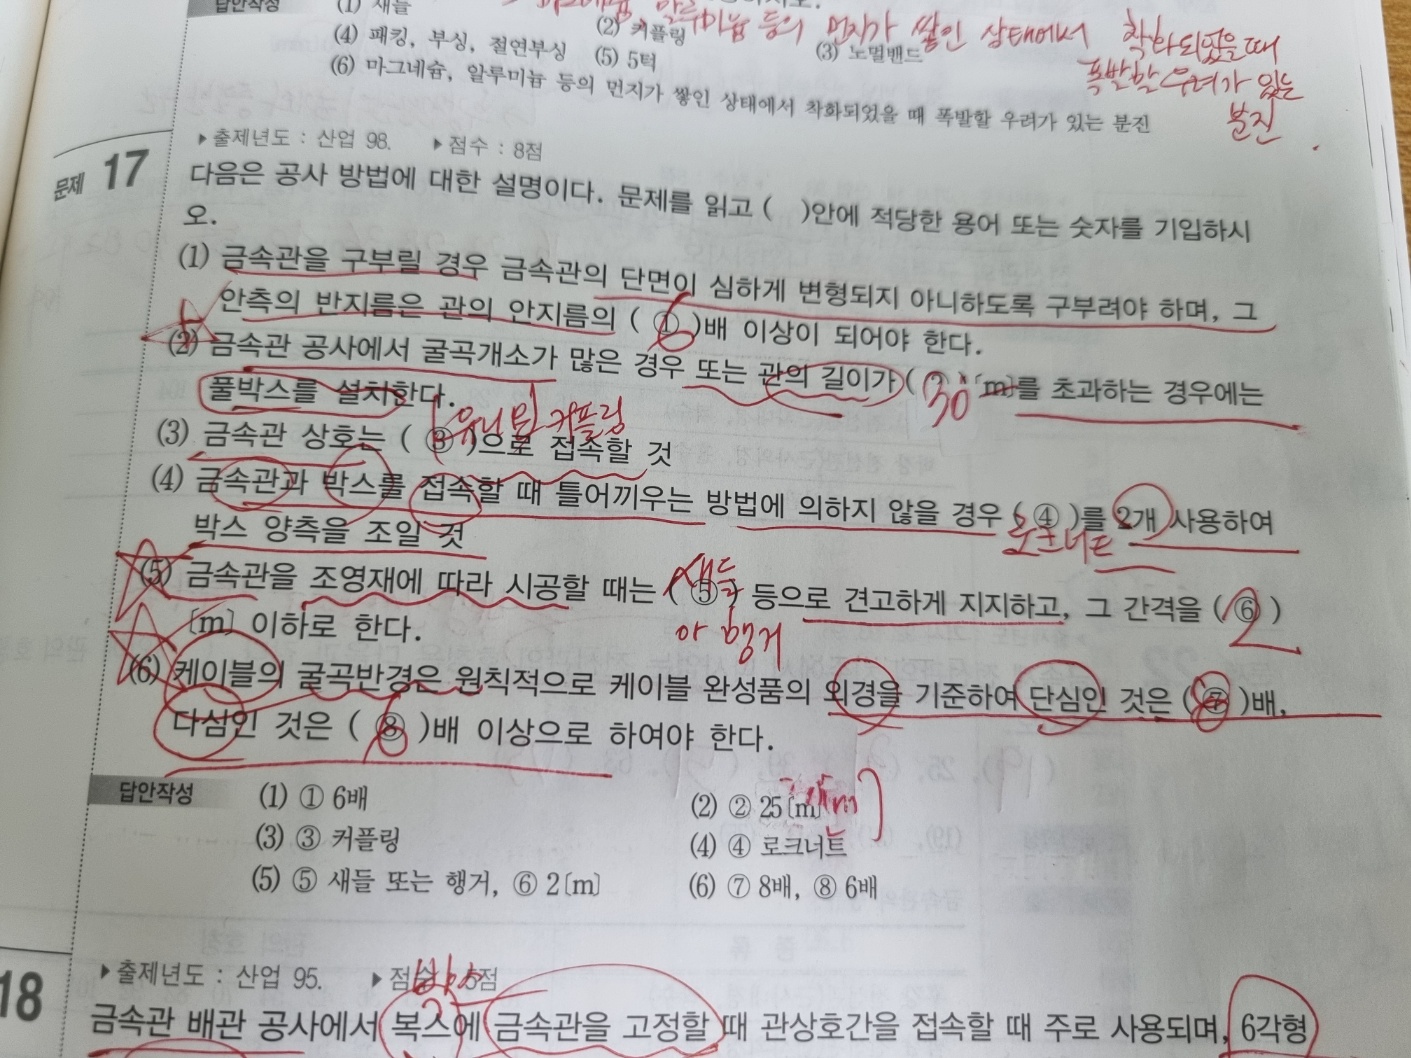 답안작성 (1) 새들 (2) 커플링 (3) 노멀밴드
(4) 패킹, 부싱, 절연부싱 (5) 5턱
(6) 마그네슘, 알루미늄 등의 먼지가 쌓인 상태에서 착화되었을 때 폭발할 우려가 있는 분진
알루미늄 등의 먼지가 쌓인 상태에서 착화되었을때
폭발할 우려가 있는
분진
▶출제년도 : 산업 98. ▶점수 : 8점
문제 17 다음은 공사 방법에 대한 설명이다. 문제를 읽고 ( )안에 적당한 용어 또는 숫자를 기입하시
오.
(1) 금속관을 구부릴 경우 금속관의 단면이 심하게 변형되지 아니하도록 구부려야 하며, 그
안측의 반지름은 관의 안지름의 ( ① )배 이상이 되어야 한다.
6
(2) 금속관 공사에서 굴곡개소가 많은 경우 또는 관의 길이가 ( ② )[m]를 초과하는 경우에는
30
풀박스를 설치한다.
유니온 커플링
(3) 금속관 상호는 ( ③ )으로 접속할 것
(4) 금속관과 박스를 접속할 때 틀어끼우는 방법에 의하지 않을 경우 ( ④ )를 2개 사용하여
로크너트
박스 양측을 조일 것
새들
(5) 금속관을 조영재에 따라 시공할 때는 ( ⑤ ) 등으로 견고하게 지지하고, 그 간격을 ( ⑥ )
2
[m] 이하로 한다.
행거
(6) 케이블의 굴곡반경은 원칙적으로 케이블 완성품의 외경을 기준하여 단심인 것은 ( ⑦ )배,
8
다심인 것은 ( ⑧ )배 이상으로 하여야 한다.
6
답안작성 (1) ① 6배 (2) ② 25[m]
(3) ③ 커플링 (4) ④ 로크너트
(5) ⑤ 새들 또는 행거, ⑥ 2[m] (6) ⑦ 8배, ⑧ 6배
▶출제년도 : 산업 95. ▶점수 : 5점
박스
18 금속관 배관 공사에서 복스에 금속관을 고정할 때 관상호간을 접속할 때 주로 사용되며, 6각형